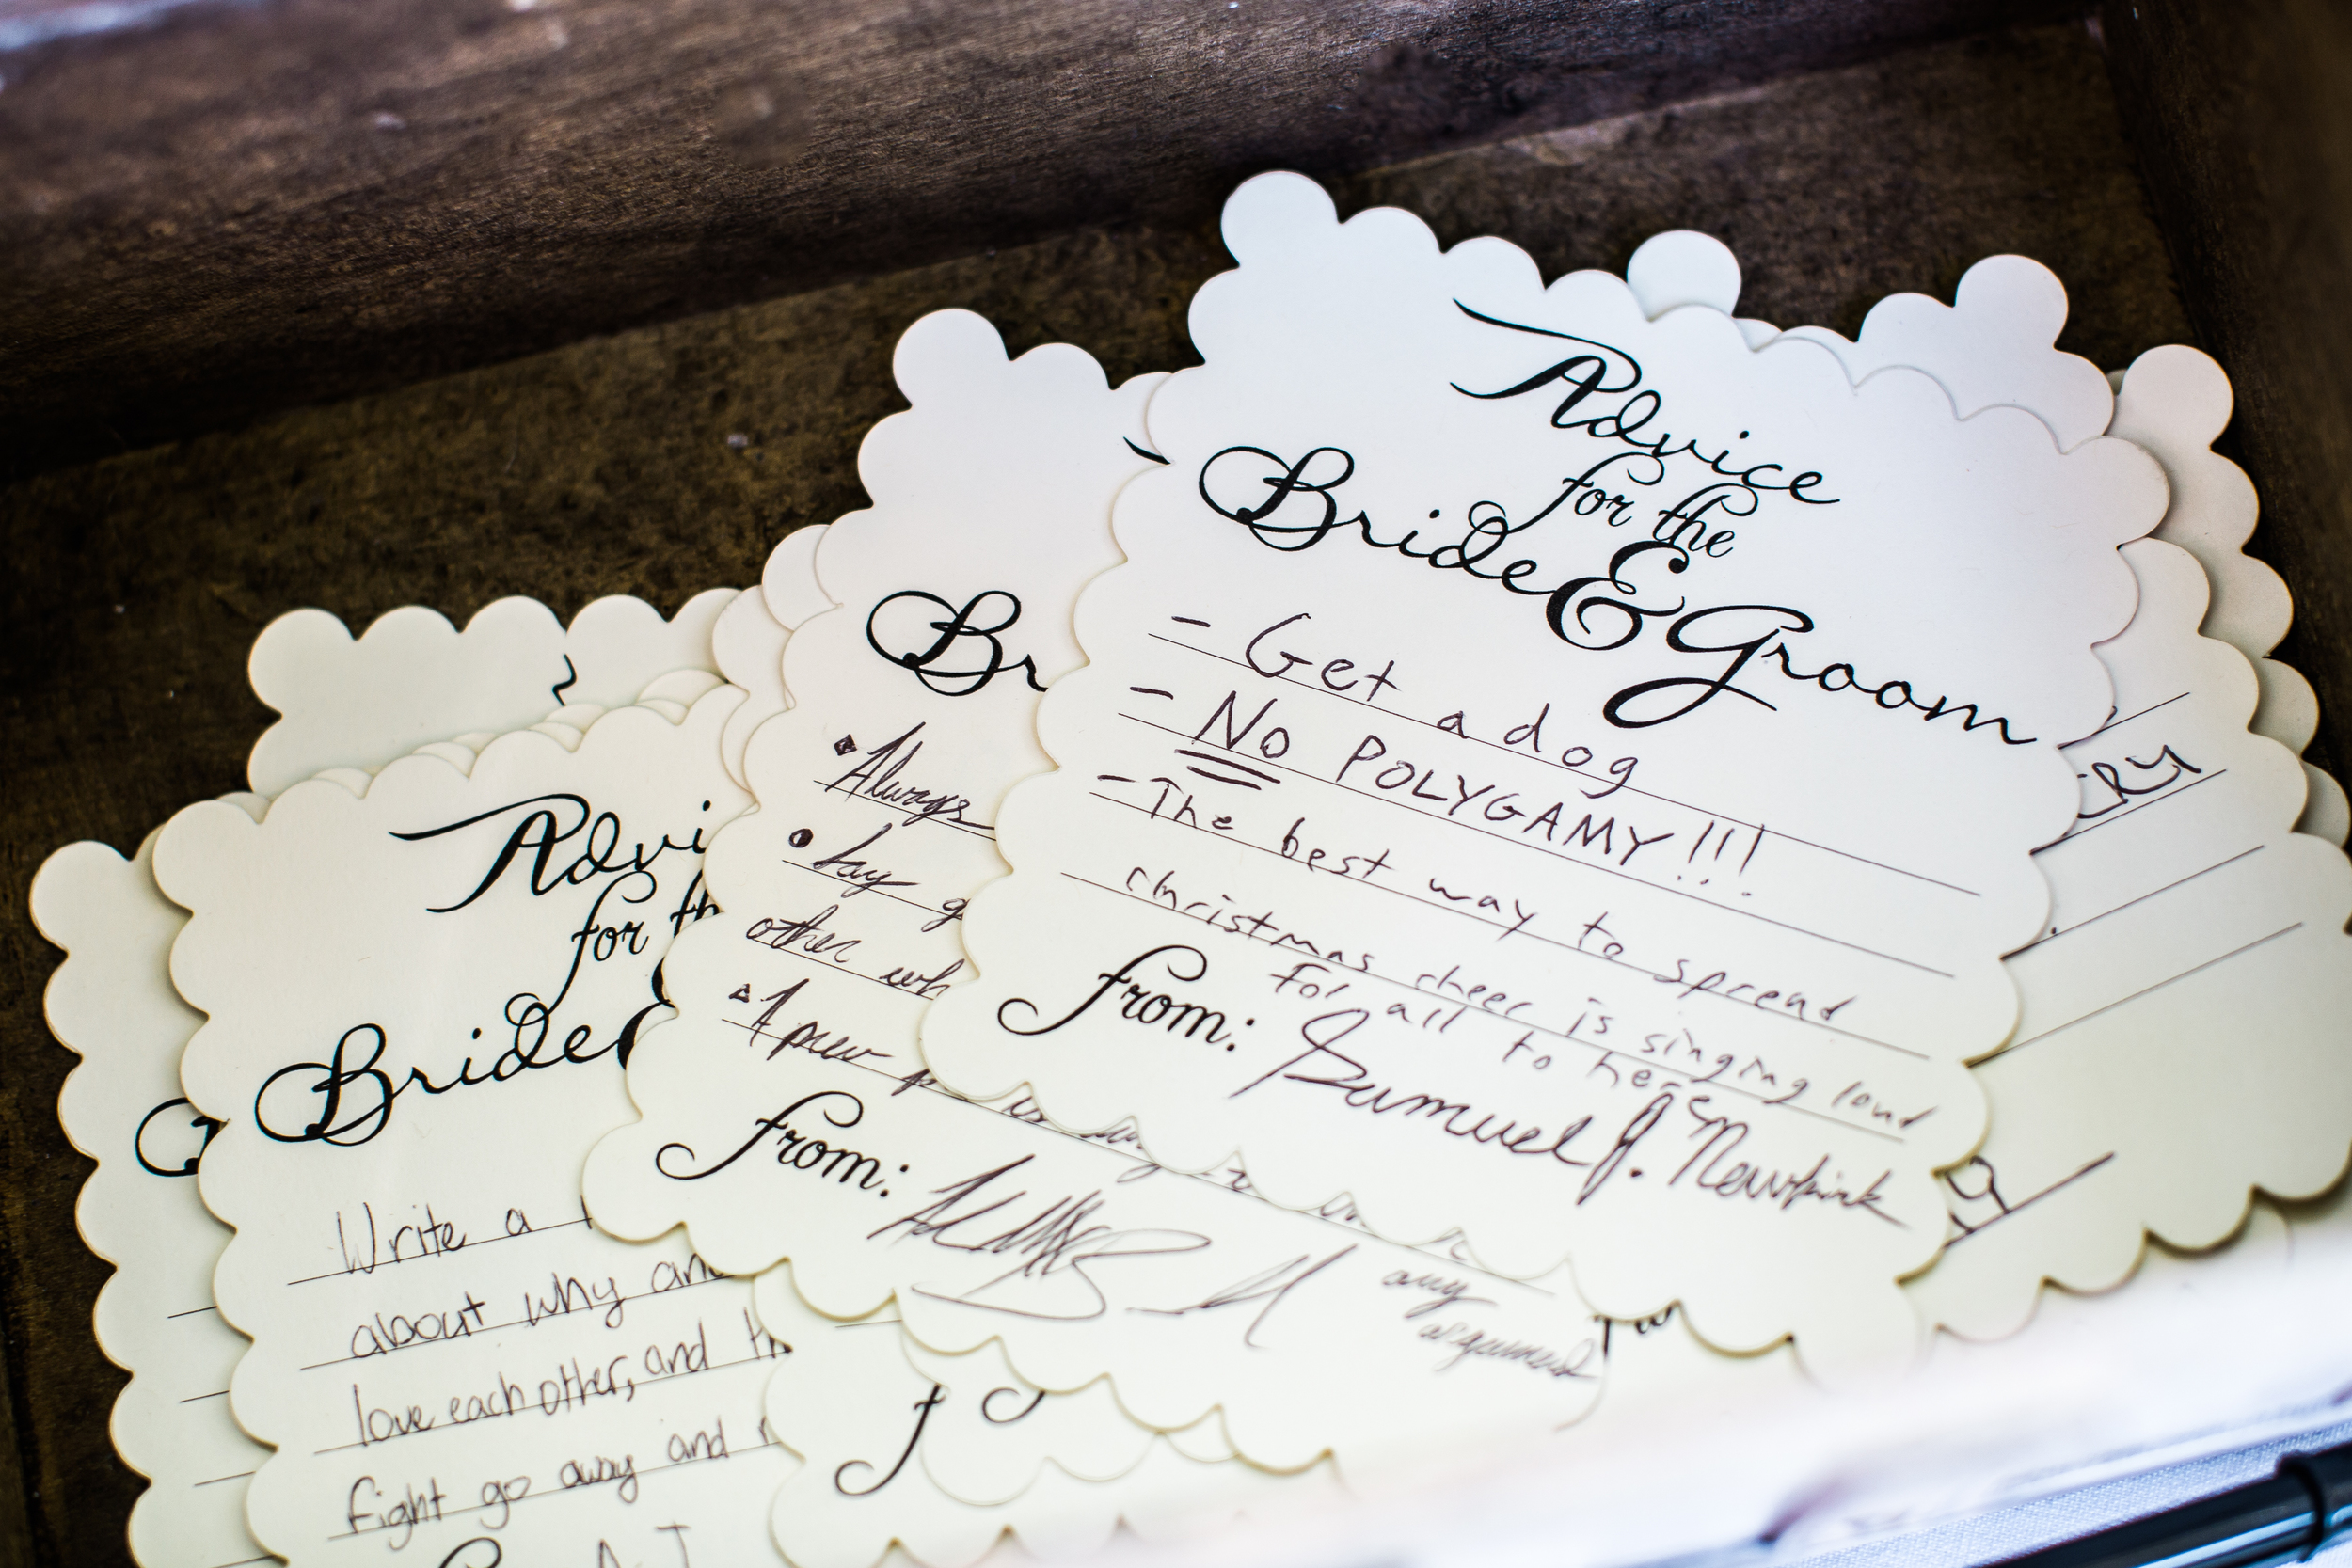 Advice
for the
Bride & Groom
- Get a dog
- No POLYGAMY!!!
- The best way to spread
christmas cheer is singing loud
For all to hear
From: Samuel J. Newkirk
Br
Always
Say g
other wh
A
From:
any
argument
Advi
for th
Bride
Write a
about why and
love each other, and th
fight go away and
RY